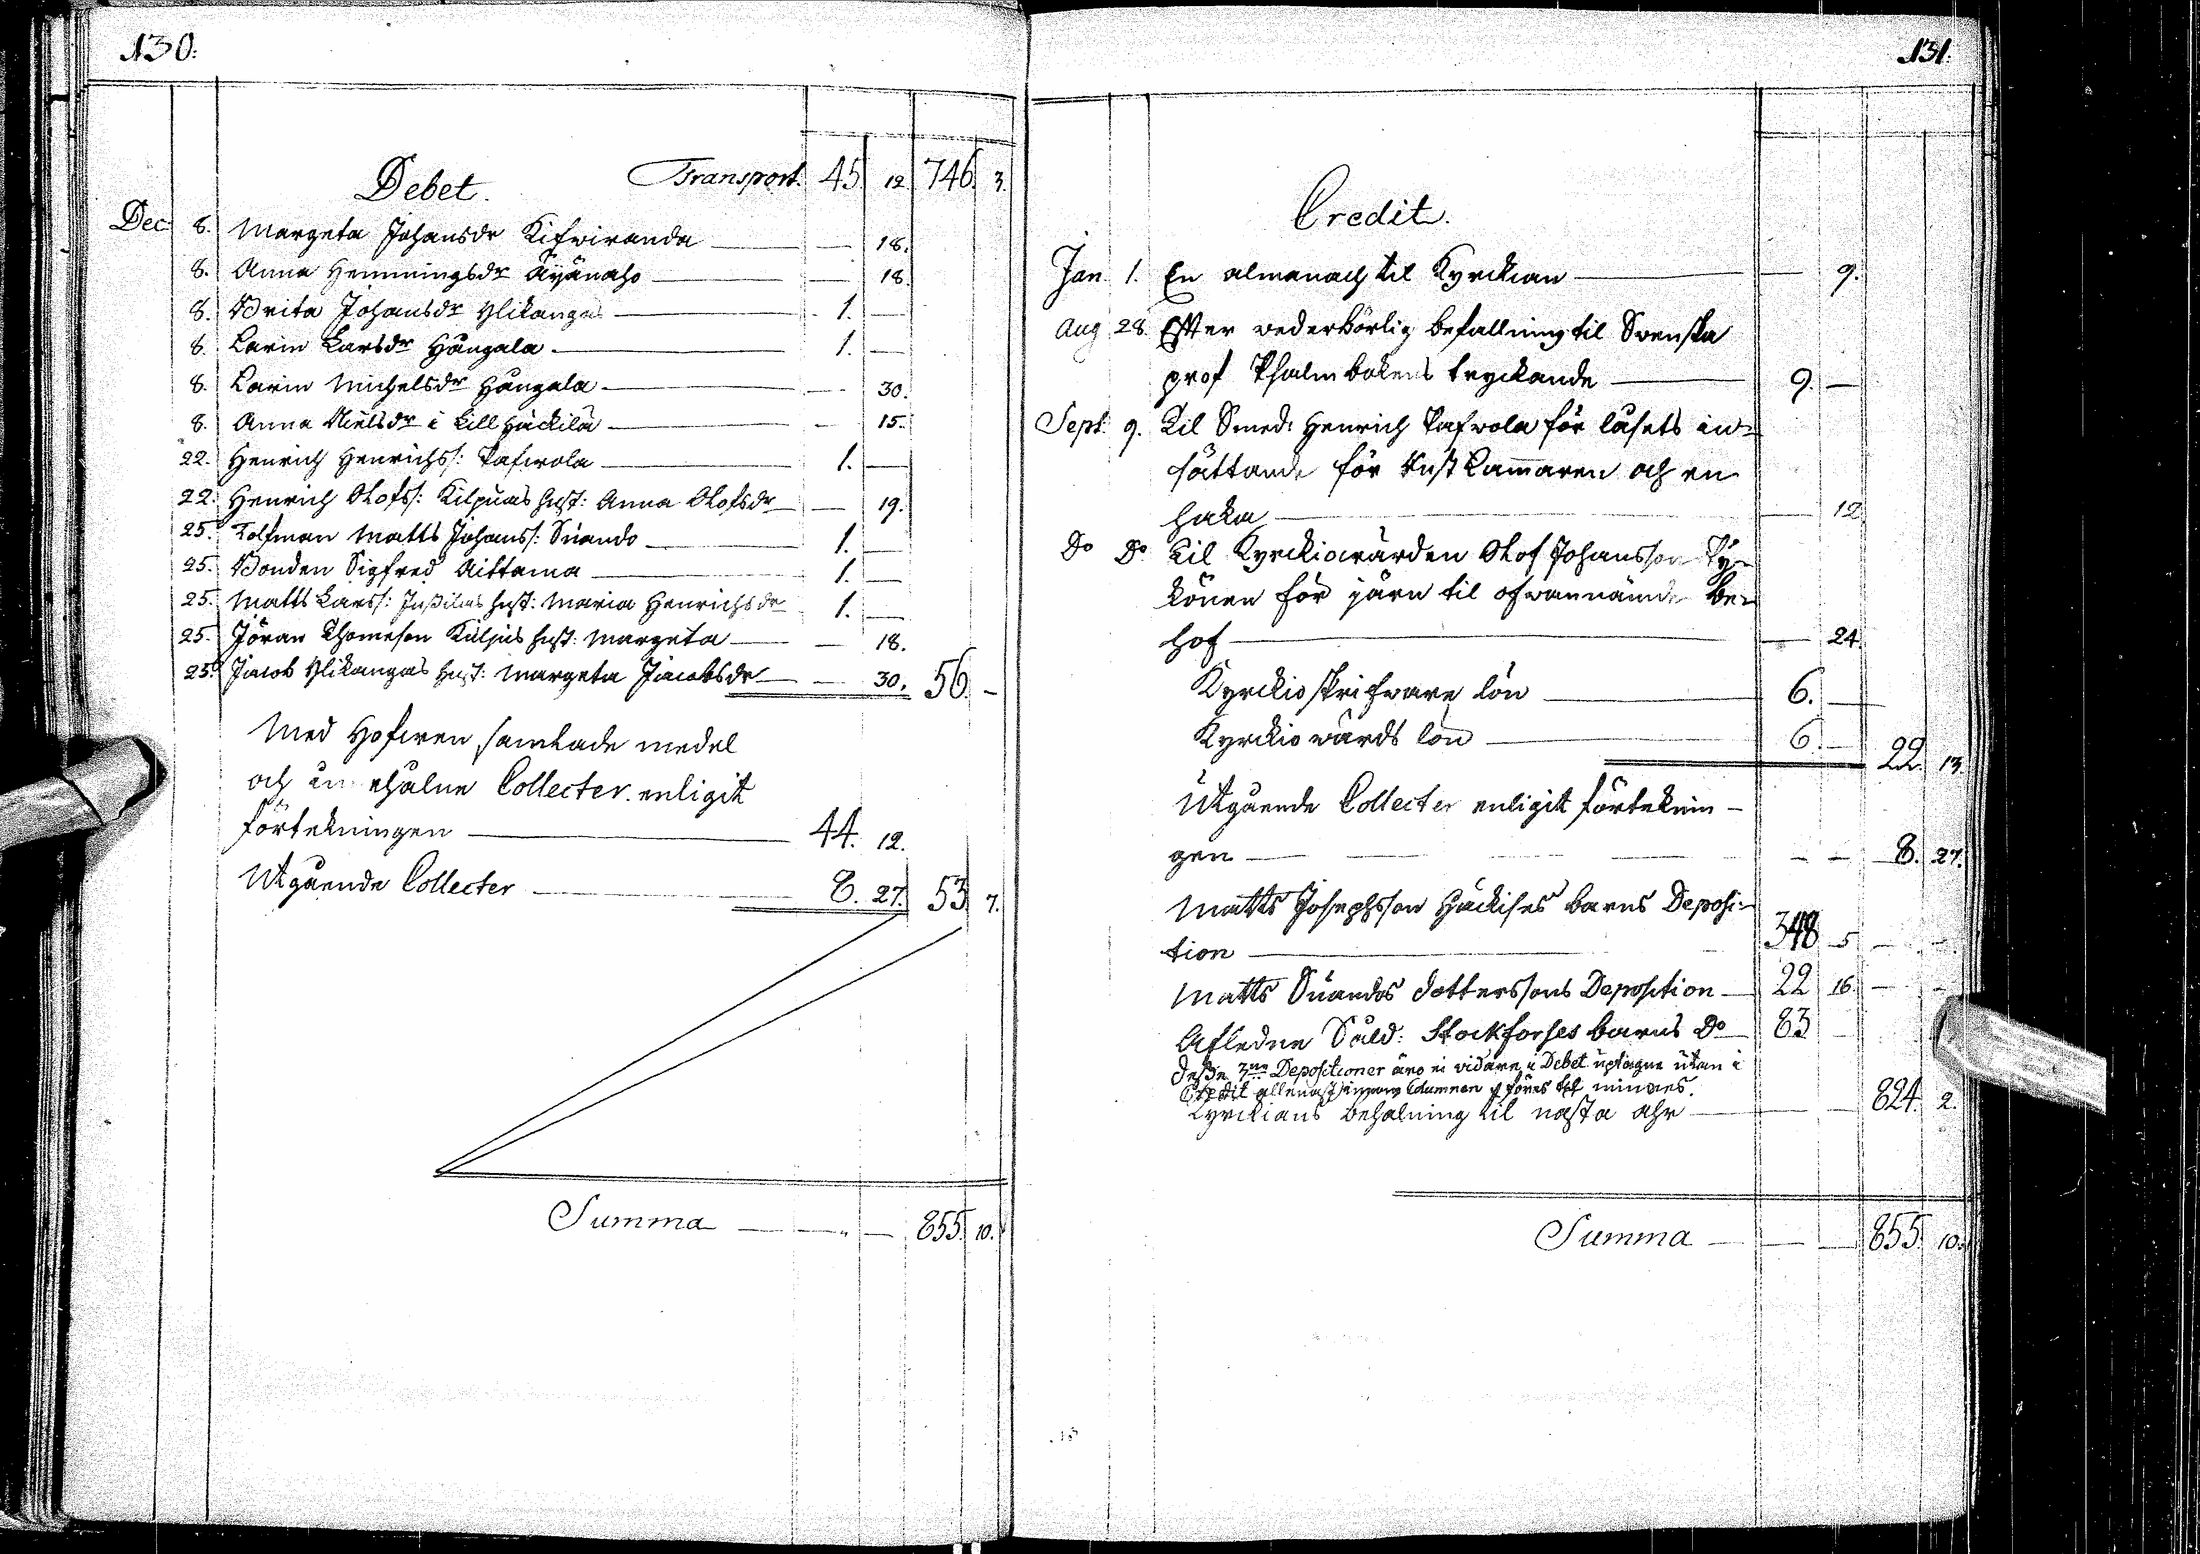 130:
Debet. Transport. 45 12. 746. 3.
Dec 8. Margeta Johansdr Kifwiranda — 18.
8. Anna Henningsdr Äyänaho — 18.
8. Brita Johansdr Ylikangas 1. —
8. Carin Larsdr Hångala 1. —
8. Carin Michelsdr Hångala — 30.
8. Anna Nielsdr i Lill Häckilä — 15.
22. Henrich Henrichss: Pafwola 1. —
22. Henrich Olofs: Kilpuas hust: Anna Olofsdr — 19.
25. Tolfman Matts Johanss: Suando 1. —
25. Bonden Sigfred Aittama 1. —
25. Matts Larss: Jußilas hust: Maria Henrichsdr 1. —
25. Jöran Thomeson Kuljus hust: Margeta — 18.
25. Jacob Ylikangas hust: Margeta Jacobsdr — 30. 56 -
Med Hofwen samlade medel
och Collecter enligit
förtekningen 44. 12.
Utgående Collecter 8. 27. 53 7.
Summa 855. 10.
131.
Credit.
Jan. 1. En almanach til Kyrckian — 9.
Aug 28. Efter wederbörlig befallning til Swenska
prof Psalmbokens tryckande 9. —
Sept. 9. Til Smed: Henrich Pafwola för låsets in=
sättande för Kust Cammaren och en
haka — 12.
Do Do Til Kyrckiowärden Olof Johansson Py=
könen för järn til ofwannämde be=
hof — 24.
Kyrckioskrifware lön 6. —
Kyrckiowärds lön 6. — 22. 13.
Utgående Collecter enligit förteknin=
gen — — 8. 27.
Matts Josephsson Häckises barns Deposi=
tion 348 5 — —
Matts Suandos dottersons Deposition 22 16. — —
Afledne Sold: Stockforses barns Do 83 —
deße 3ne Depositioner äro ei vidare i Debet uptagne utan i
Credit allenast Columnen föres til minnes.
Kyrckians behålning til nästa åhr — — 824. 2.
Summa — — 855 10.